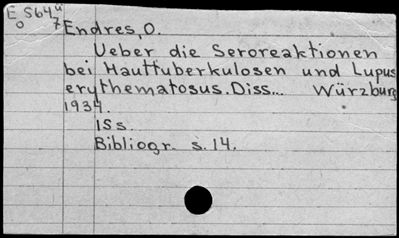 E 564 u
0 7
Endres, O.
Ueber die Seroreaktionen
bei Hauttuberkulosen und Lupus
erythematosus. Diss... Würzburg
1934.
15 s.
Bibliogr. s. 14.